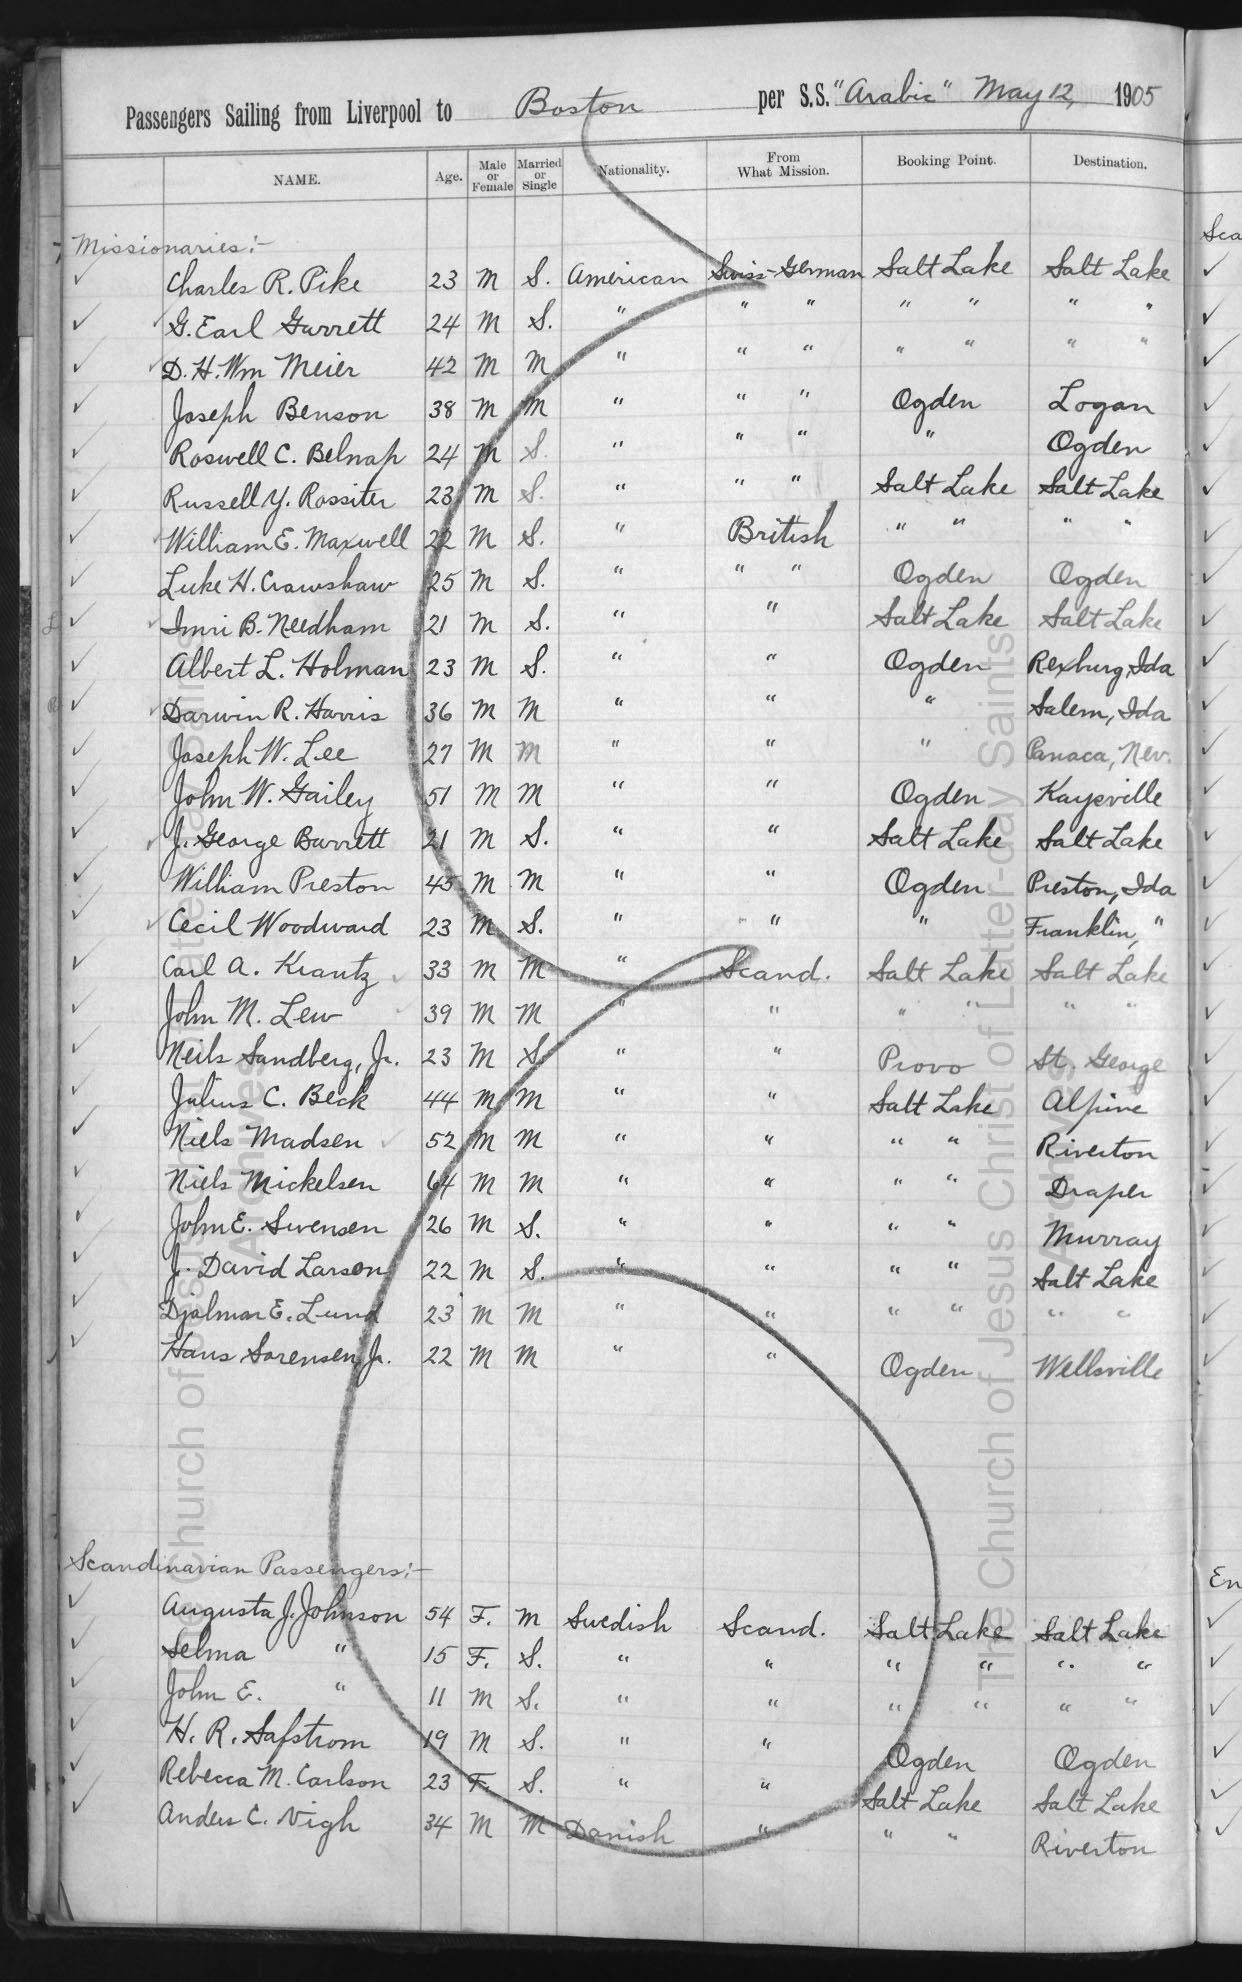 Passengers Sailing from Liverpool to Boston per S.S. "Arabic" May 12, 1905
NAME. Age. Male or Female Married or Single Nationality. From What Mission. Booking Point. Destination.
Missionaries:-
Charles R. Pike 23 M S. American Swiss-German Salt Lake Salt Lake
G. Earl Garrett 24 M S. " " " " " " "
D. H. Wm Meier 42 M M " " " " " " "
Joseph Benson 38 M M " " " Ogden Logan
Roswell C. Belnap 24 M S. " " " " Ogden
Russell Y. Rossiter 23 M S. " " " Salt Lake Salt Lake
William E. Maxwell 22 M S. " British " " " "
Luke H. Crawshaw 25 M S. " " " Ogden Ogden
Imri B. Needham 21 M S. " " Salt Lake Salt Lake
Albert L. Holman 23 M S. " " Ogden Rexburg, Ida
Darwin R. Harris 36 M M " " " Salem, Ida
Joseph W. Lee 27 M M " " " Panaca, Nev.
John W. Gailey 51 M M " " Ogden Kaysville
J. George Barrett 21 M S. " " Salt Lake Salt Lake
William Preston 45 M M " " Ogden Preston, Ida
Cecil Woodward 23 M S. " " " Franklin, "
Carl A. Krantz 33 M M " Scand. Salt Lake Salt Lake
John M. Lew 39 M M " " " " " "
Neils Sandberg, Jr. 23 M S. " " Provo St. George
Julius C. Beck 44 M M " " Salt Lake Alpine
Niels Madsen 52 M M " " " " Riverton
Niels Mickelsen 64 M M " " " " Draper
John E. Swensen 26 M S. " " " " Murray
J. David Larson 22 M S. " " " " Salt Lake
Djalmar E. Lund 23 M M " " " " " "
Hans Sorensen, Jr. 22 M M " " Ogden Wellsville
Scandinavian Passengers:-
Augusta J. Johnson 54 F. M Swedish Scand. Salt Lake Salt Lake
Selma " 15 F. S. " " " " " "
John E. " 11 M S. " " " " " "
H. R. Safstrom 19 M S. " " Ogden Ogden
Rebecca M. Carlson 23 F. S. " " Salt Lake Salt Lake
Anders C. Vigh 34 M M Danish " " " Riverton
Sca
En
The Church of Jesus Christ of Latter-day Saints
Archives
The Church of Jesus Christ of Latter-day Saints
Archives